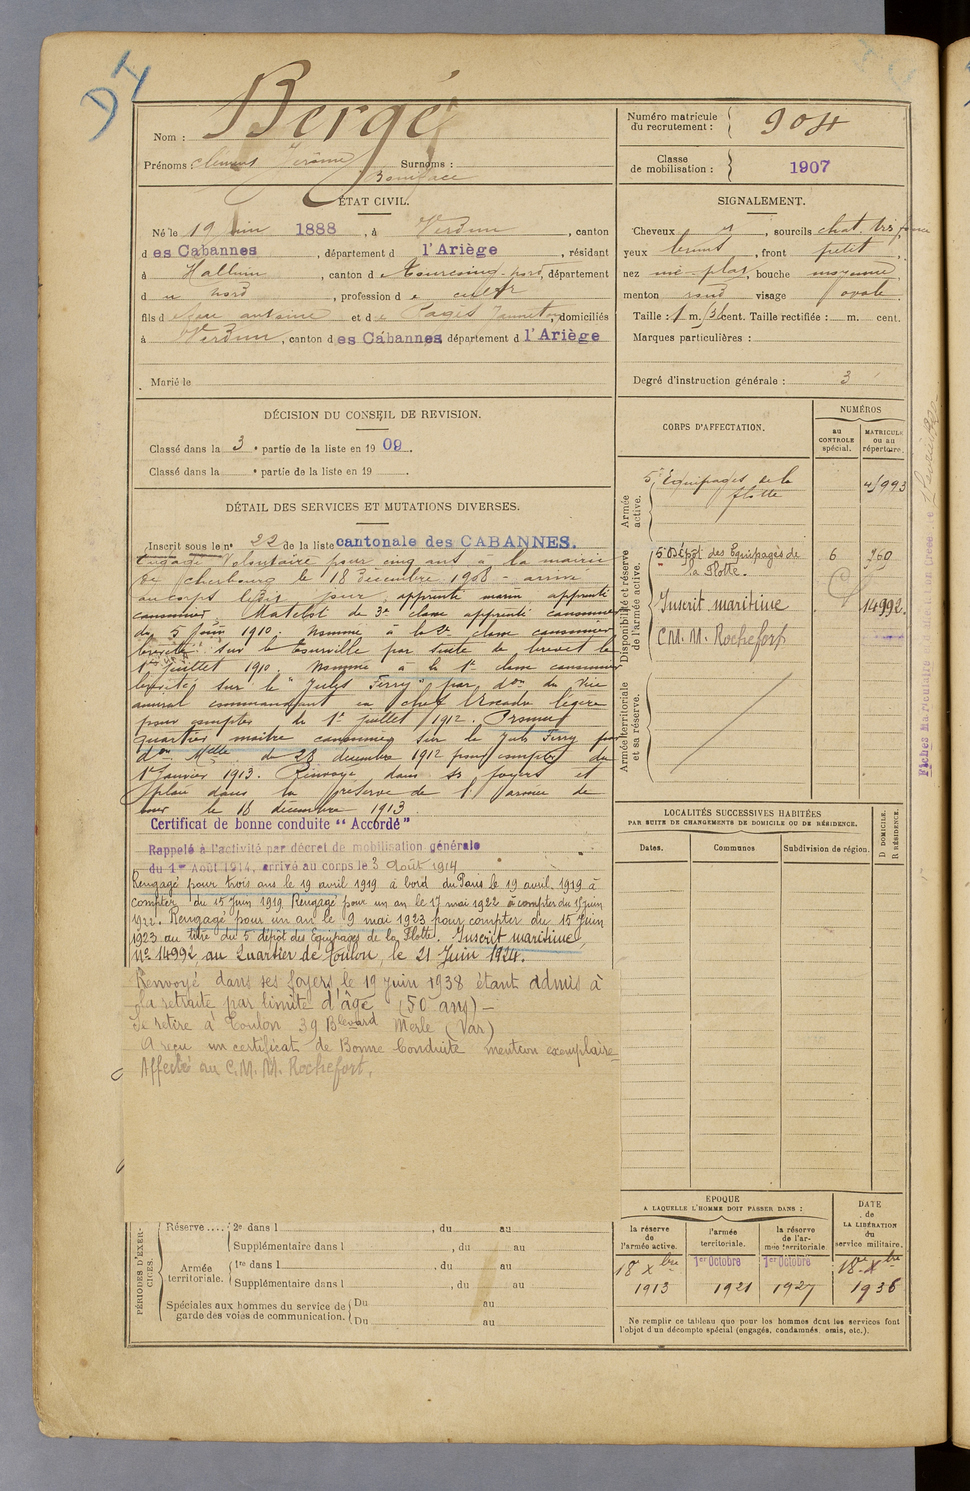 DI
Nom : Bergé
Prénoms : Clément Jérôme Surnoms :
Boniface
Numéro matricule du recrutement : 904
Classe de mobilisation : 1907
ÉTAT CIVIL.
Né le 19 juin 1888, à Verdun, canton
d es Cabannes, département d l'Ariège, résidant
à Halluin, canton d e Tourcoing-nord, département
d u nord, profession d e
fils d e Jean antoine et d e Pagès Jeanneton, domiciliés
à Verdun, canton d es Cabannes département d l'Ariège
Marié le
SIGNALEMENT.
Cheveux, sourcils chat.
yeux, front petit,
nez, bouche moyenne,
menton rond visage ovale.
Taille : 1 m. cent. Taille rectifiée : m. cent.
Marques particulières :
Degré d'instruction générale : 3
DÉCISION DU CONSEIL DE REVISION.
Classé dans la 3 e partie de la liste en 19 09.
Classé dans la e partie de la liste en 19
CORPS D'AFFECTATION.
NUMÉROS
au CONTROLE spécial.
MATRICULE ou au répertoire.
Armée active.
5e Equipages de la
flotte
Disponibilité et réserve de l'armée active.
5e Dépôt des Equipages de 6 960
la Flotte.
Inscrit maritime 14992.
C.M.M. Rochefort
Armée territoriale et sa réserve.
DÉTAIL DES SERVICES ET MUTATIONS DIVERSES.
Inscrit sous le no 22 de la liste cantonale des CABANNES.
Engagé Volontaire pour cinq ans à la mairie
de Cherbourg le 18 décembre 1908 - arrivé
au corps ledit jour, apprenti marin apprenti
canonnier Matelot de 3e classe apprenti canonnier
du Juin 1910. Nommé à la 2e classe canonnier
breveté sur le Tourville par suite de brevet le
1er Juillet 1910. Nommé à la 1e classe canonnier
breveté sur le "Jules Ferry" par don du Vice
amiral commandant en chef l'Escadre légère
pour compter du 1er juillet 1912. Promu
quartier maître canonnier sur le Jules Ferry par
don Mlle du 28 décembre 1912 pour compter du
1er Janvier 1913. Renvoyé dans ses foyers et
placé dans la réserve de l'armée de
mer le 18 décembre 1913
Certificat de bonne conduite "Accordé"
Rappelé à l'activité par décret de mobilisation générale
du 1er Août 1914, arrivé au corps le 3 Août 1914
Rengagé pour trois ans le 19 avril 1919 à bord du Paris le 19 avril 1919 à
compter du 15 Juin 1919. Rengagé pour un an le 17 mai 1922 à compter du 15 juin
1922. Rengagé pour un an le 9 mai 1923 pour compter du 15 Juin
1923 au titre du 5e dépôt des Equipages de la Flotte. Inscrit maritime
No 14992, au Quartier de Toulon, le 21 Juin 1924.
Renvoyé dans ses foyers le 19 juin 1938 étant admis à
la retraite par limite d'âge (50 ans) -
Se retire à Toulon 39 Blevard Merle (Var)
A reçu un certificat de Bonne Conduite mention exemplaire
Affecté au C.M.M. Rochefort.
LOCALITÉS SUCCESSIVES HABITÉES
PAR SUITE DE CHANGEMENTS DE DOMICILE OU DE RÉSIDENCE.
Dates.
Communes
Subdivision de région.
D DOMICILE.
R RÉSIDENCE.
PÉRIODES D'EXERCICES.
Réserve .... 2e dans l, du au
Supplémentaire dans l, du au
Armée territoriale. 1re dans l, du au
Supplémentaire dans l, du au
Spéciales aux hommes du service de garde des voies de communication. Du au
Du au
ÉPOQUE
A LAQUELLE L'HOMME DOIT PASSER DANS :
la réserve de l'armée active.
l'armée territoriale.
la réserve de l'armée territoriale
DATE de LA LIBÉRATION du service militaire.
18 Xbre 1er Octobre 1er Octobre 18 Xbre
1913 1921 1927 1936
Ne remplir ce tableau que pour les hommes dont les services font
l'objet d'un décompte spécial (engagés, condamnés, omis, etc.).